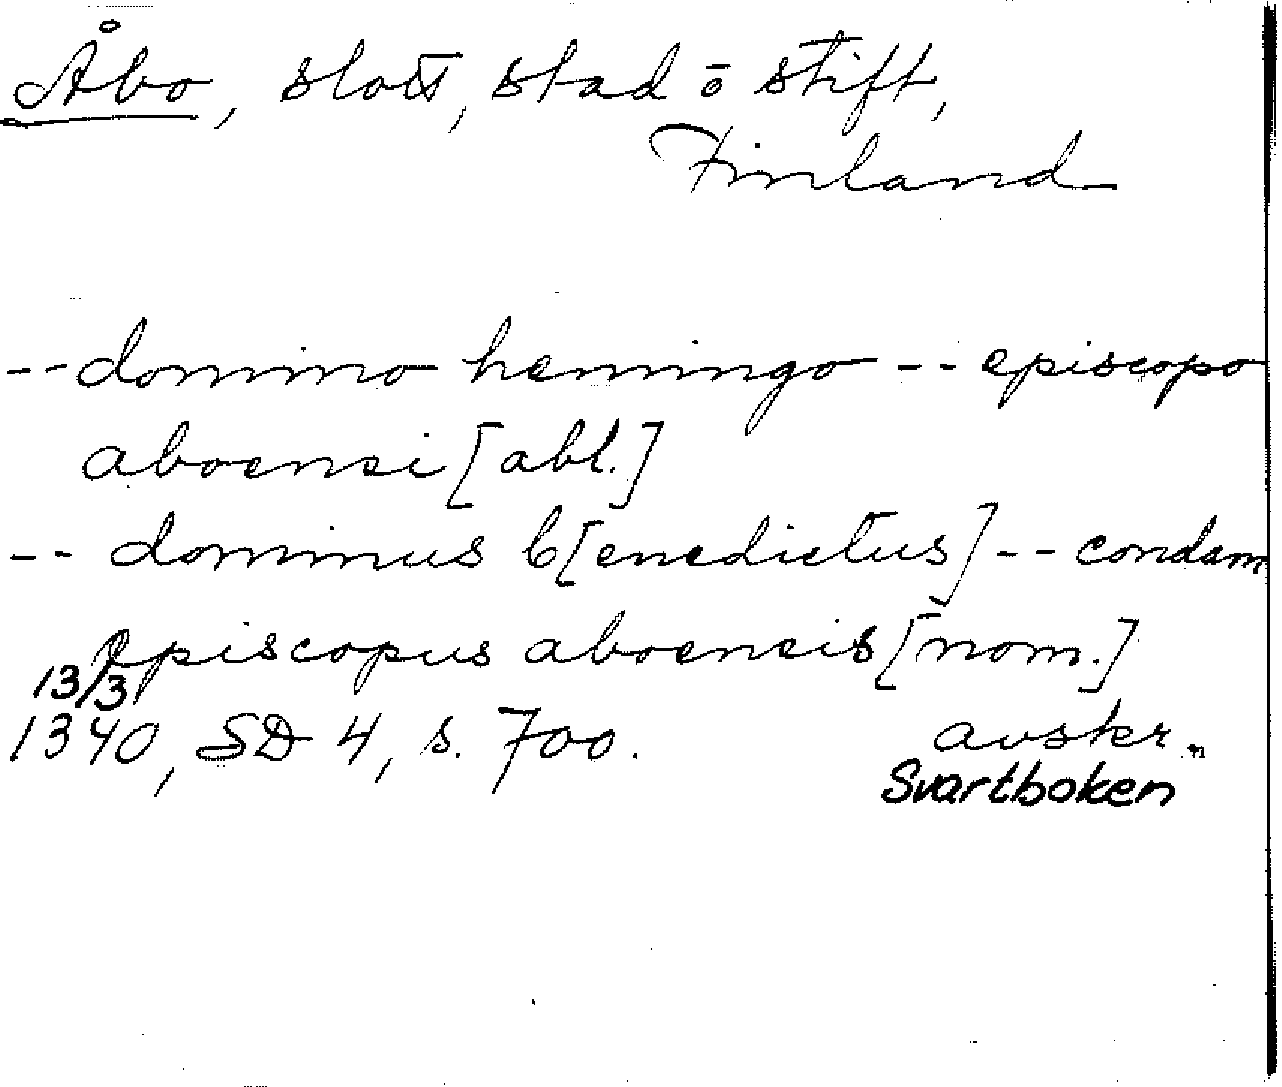 Åbo, slott, stad ō stift,
Finland
-- domino hemingo -- episcopo
aboensi [abl.]
-- dominus b[enedictus] -- condam
episcopus aboensis [nom.]
13/3
1340, SD 4, s. 700. avskr.
Svartboken